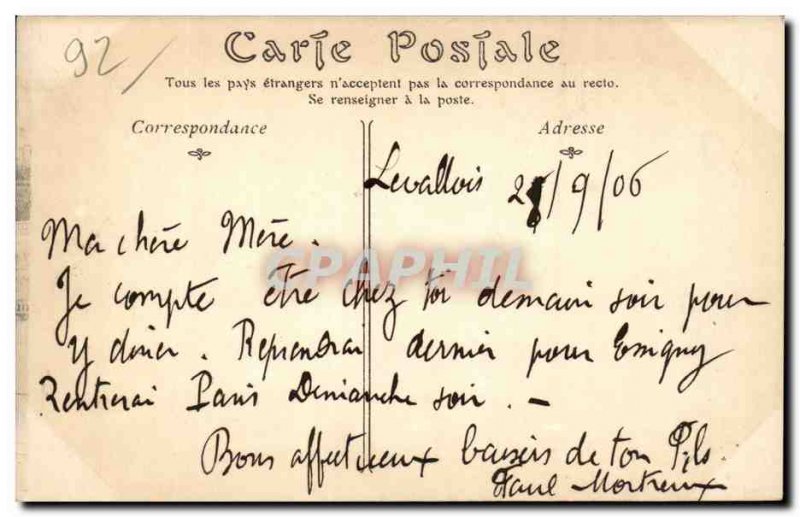 92/
Carte Postale
Tous les pays étrangers n'acceptent pas la correspondance au recto.
Se renseigner à la poste.
Correspondance
Adresse
Levallois 2 /9/06
Ma chère Mère.
CPAPHIL
Je compte être chez toi demain soir pour
y diner. Reprendrai dernier pour
Rentrerai Paris Dimanche soir. —
Bons affectueux baisers de ton Fils
Paul Mortreux